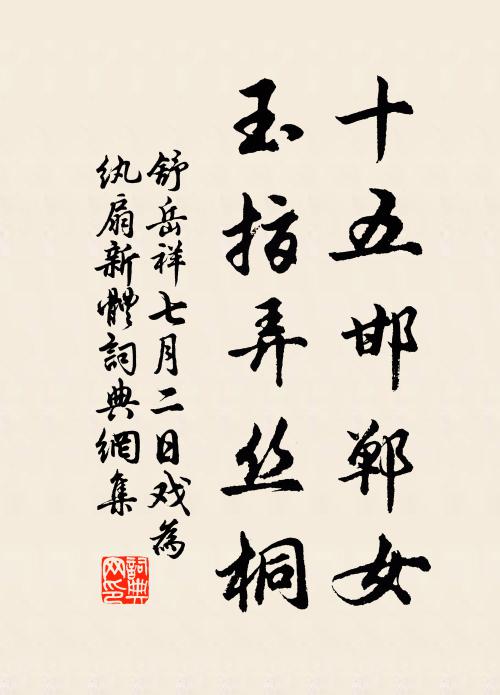 十五邯郸女
玉指弄丝桐
舒岳祥七月二日戏為
纨扇新體詞典網集
詞典網印